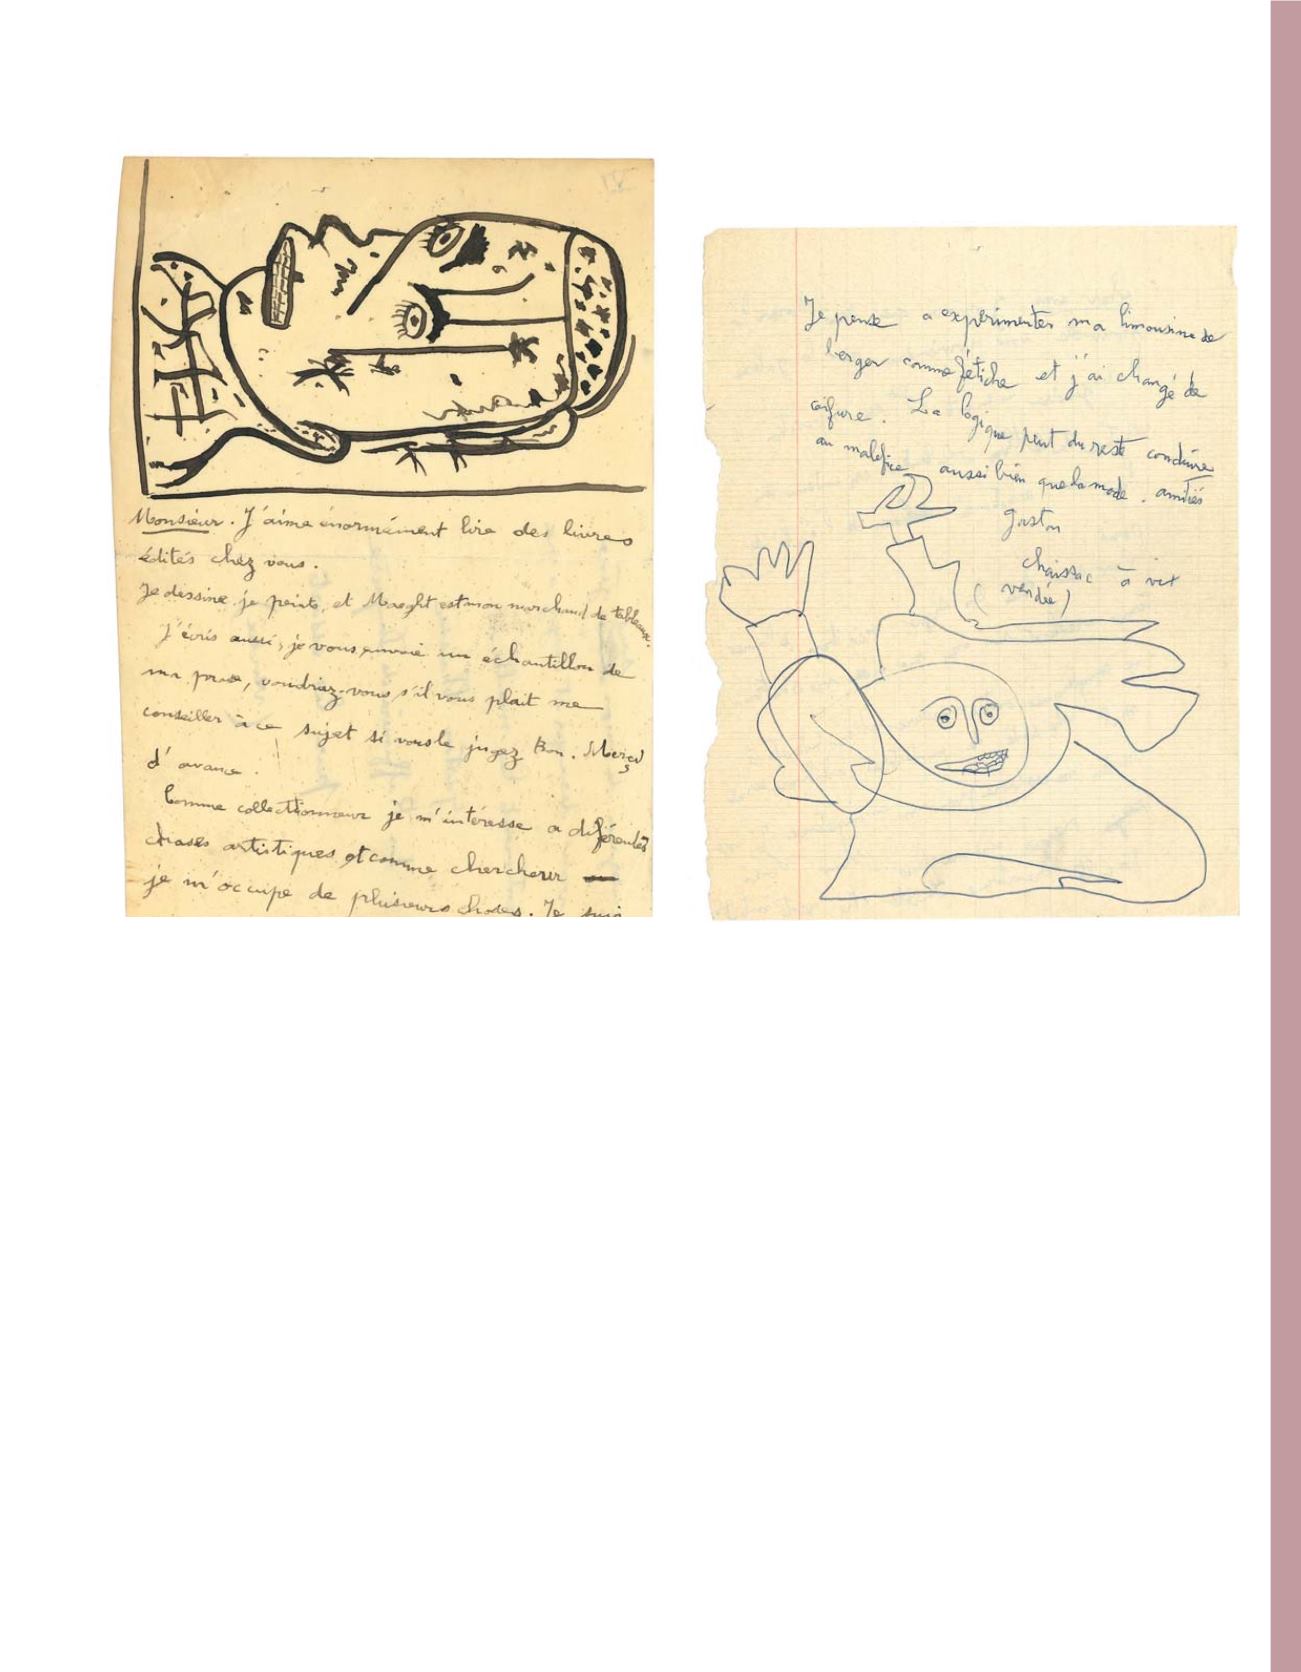 Monsieur. J'aime énormément lire des livres
édités chez vous.
Je dessine je peins, et Maeght est mon marchand de tableaux.
J'écris aussi, je vous envoie un échantillon de
ma prose, voudriez-vous s'il vous plait me
conseiller à ce sujet si vous le jugez bon. Merci
d'avance.
Comme collectionneur je m'intéresse a différentes
choses artistiques et comme chercheur
je m'occupe de plusieurs choses. Je suis
Je pense a expérimenter ma limousine de
berger comme fétiche et j'ai changé de
coifure. La logique peut du reste conduire
au malefice aussi bien que la mode. amitiés
gaston
chaissac à vix
(vendée)